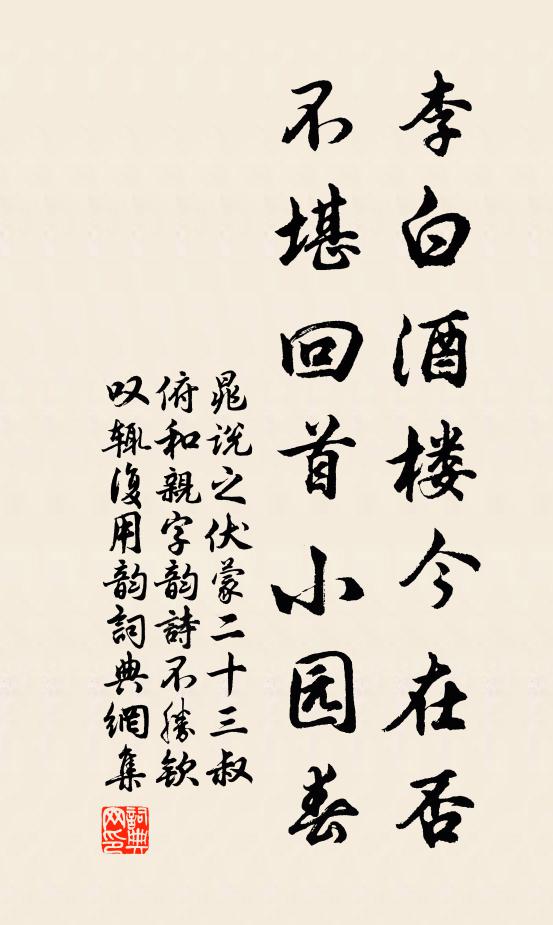 李白酒楼今在否
不堪回首小园春
晁说之伏蒙二十三叔
俯和親字韵詩不勝钦
叹辄復用韵詞典網集
詞典网印